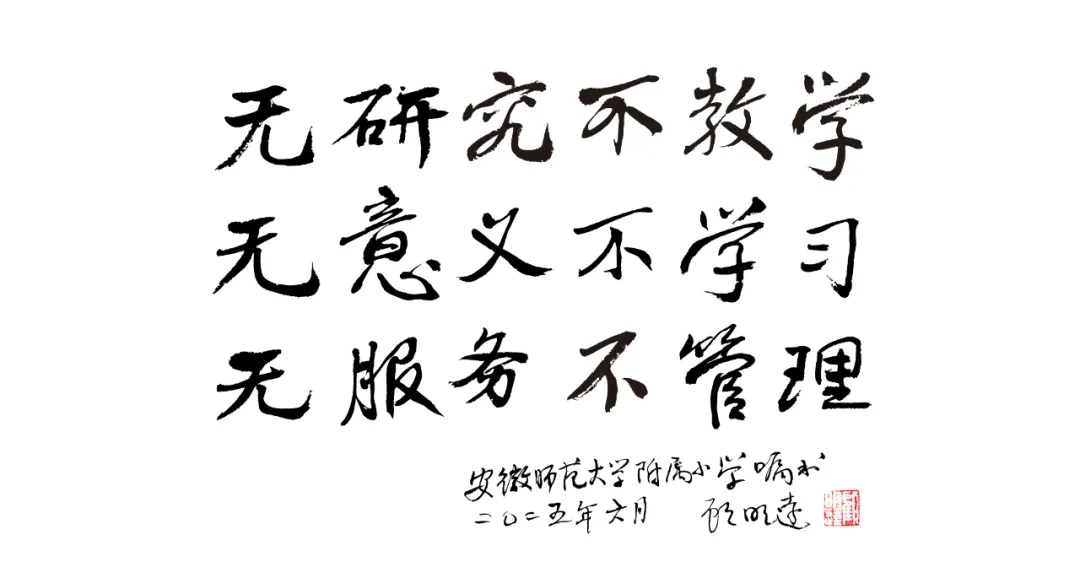 无研究不教学
无意义不学习
无服务不管理
安徽师范大学附属小学嘱书
二〇二五年六月 顾明远